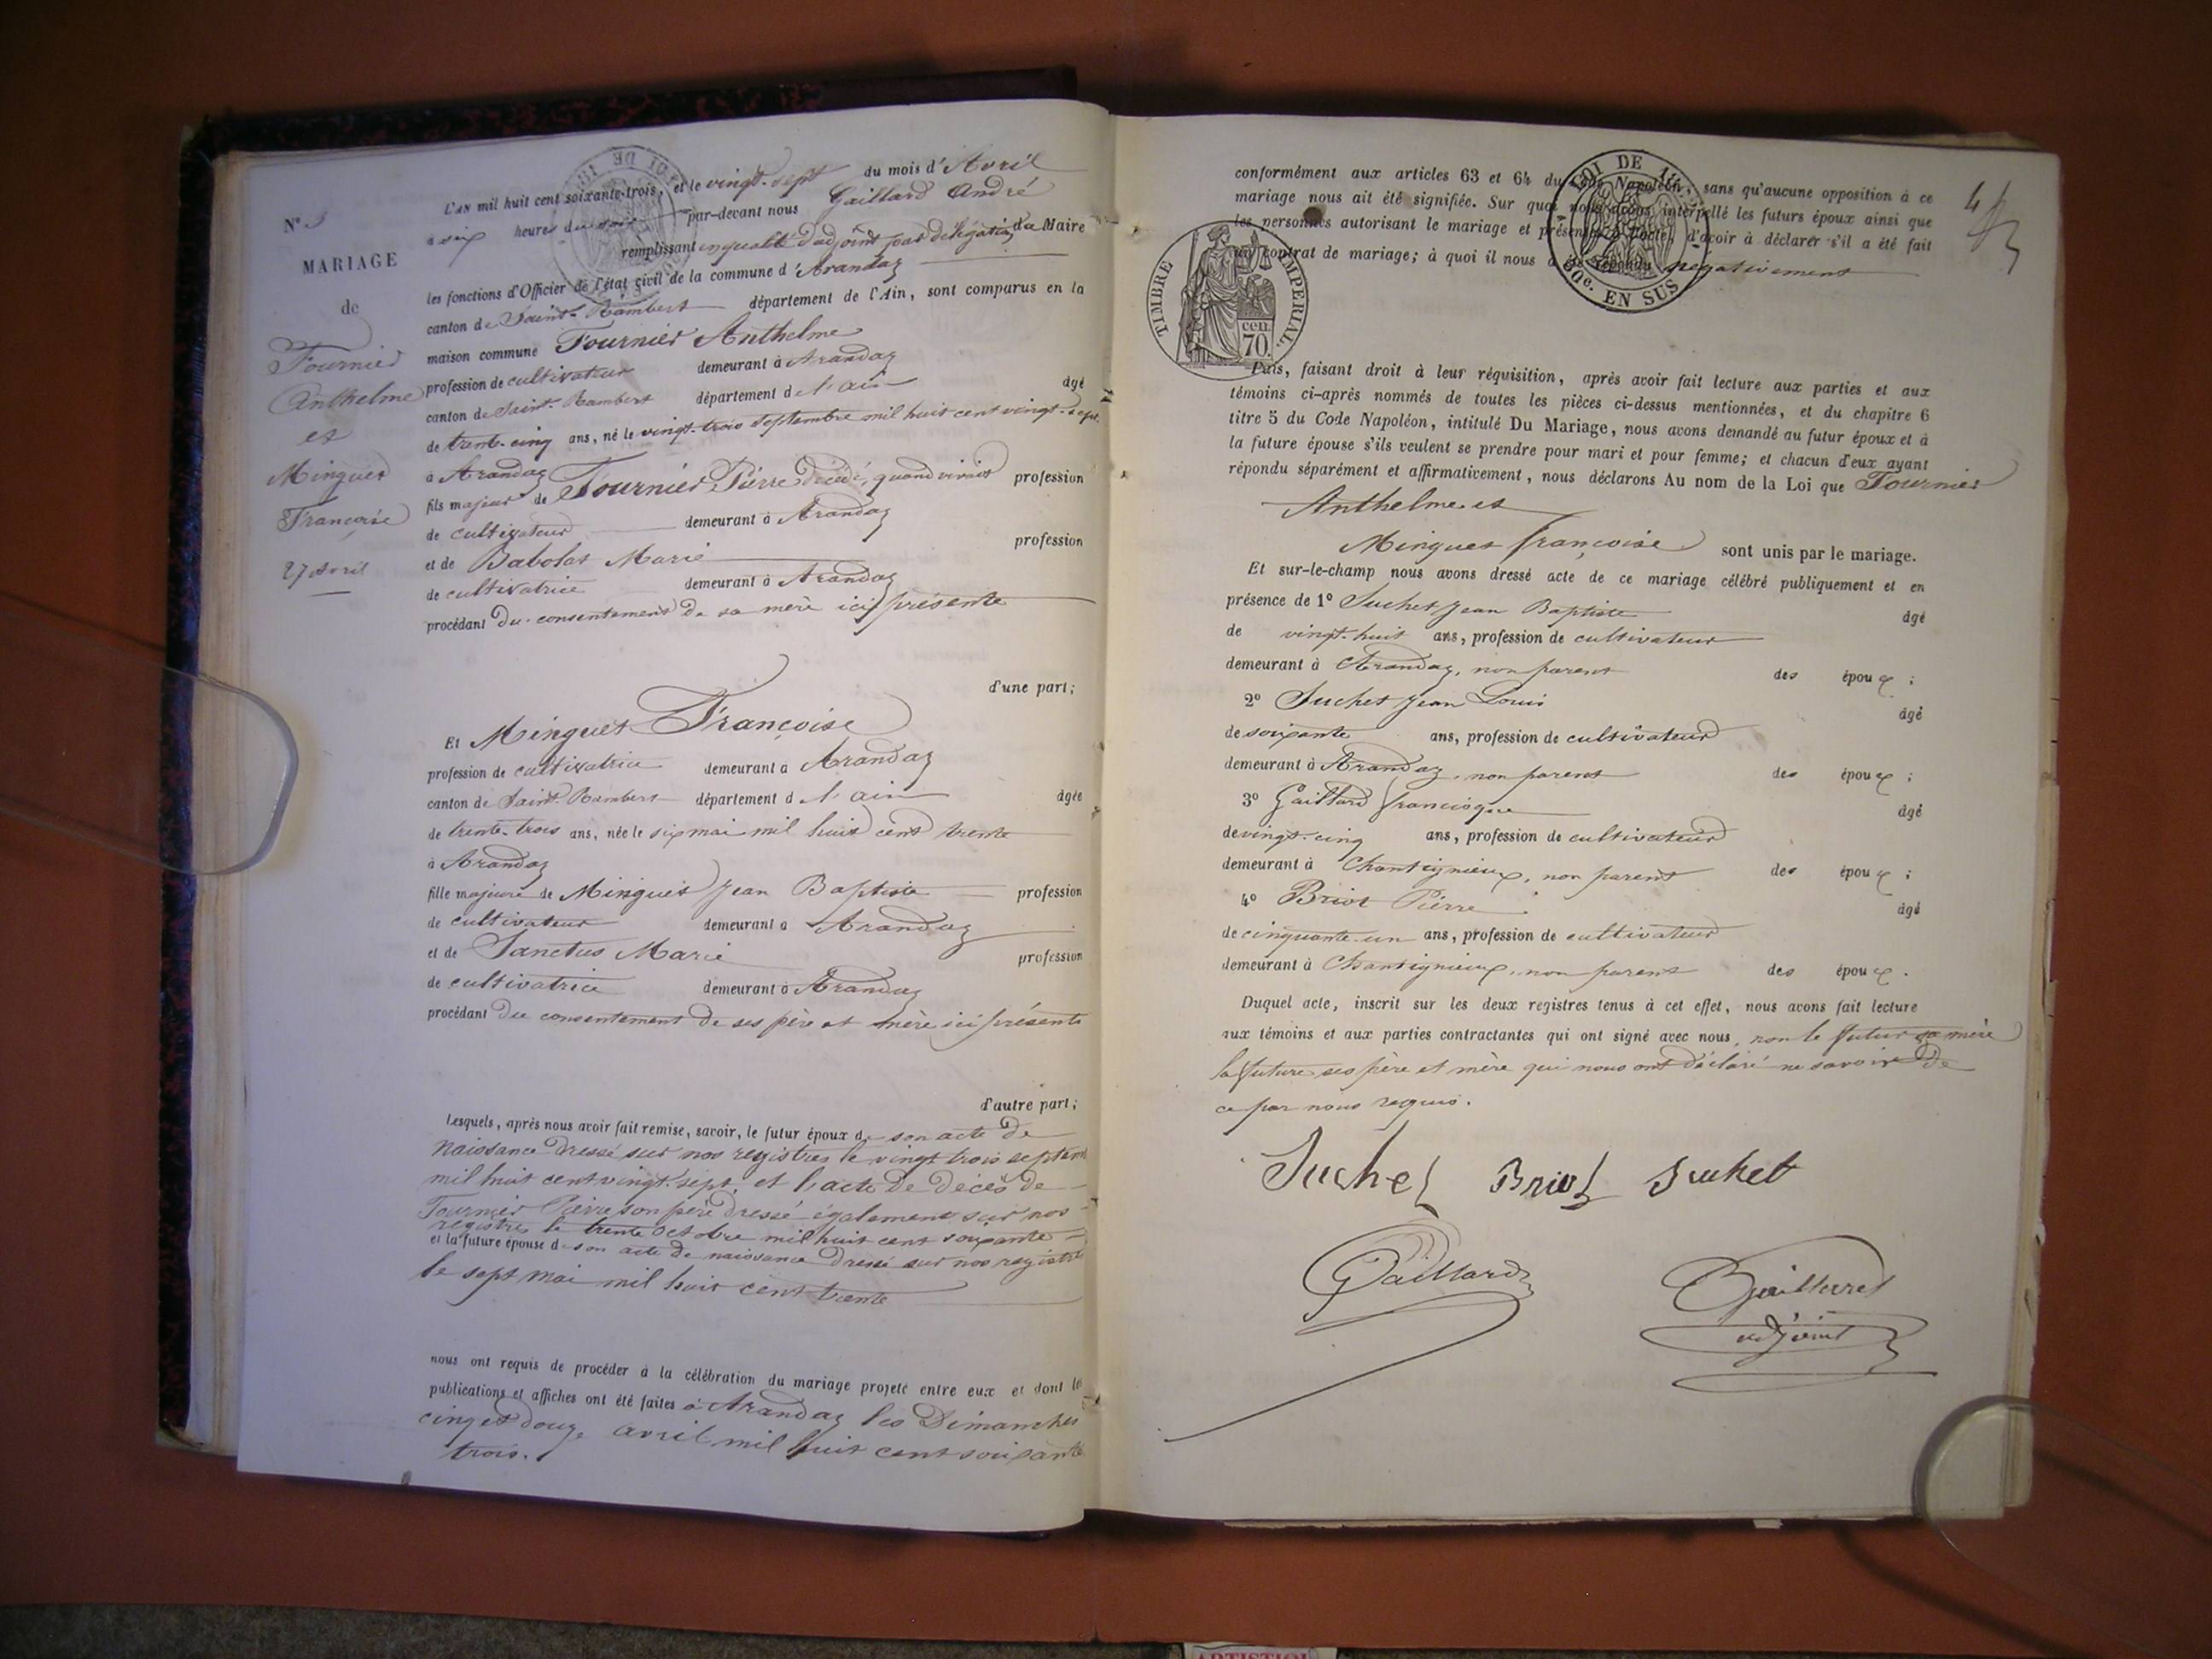 N° 3
MARIAGE
de
Fournier
Anthelme
et
Minguet
Françoise
27 Avril
L'AN mil huit cent soixante-trois, et le vingt-sept du mois d'Avril
à six heures du soir par-devant nous Gaillard André
remplissant en qualité d'adjoint par délégation du Maire
les fonctions d'Officier de l'état civil de la commune d'Arandaz
canton de Saint-Rambert département de l'Ain, sont comparus en la
maison commune Fournier Anthelme
profession de cultivateur demeurant à Arandaz
canton de Saint-Rambert département de l'ain âgé
de trente-cinq ans, né le vingt-trois septembre mil huit cent vingt-sept
à Arandaz
fils majeur de Fournier Pierre décédé, quand vivait profession
de cultivateur demeurant à Arandaz
et de Babolat Marie profession
de cultivatrice demeurant à Arandaz
procédant du consentement de sa mère ici présente
d'une part;
Et Minguet Françoise
profession de cultivatrice demeurant à Arandaz
canton de Saint-Rambert département d l'ain âgée
de trente-trois ans, née le six mai mil huit cent trente
à Arandaz
fille majeure de Minguet Jean Baptiste profession
de cultivateur demeurant à Arandaz
et de Sanctus Marie profession
de cultivatrice demeurant à Arandaz
procédant du consentement de ses père et mère ici présents
d'autre part;
Lesquels, après nous avoir fait remise, savoir, le futur époux de son acte de
naissance dressé sur nos registres le vingt trois septem
mil huit cent vingt-sept, et l'acte de décès de
Fournier Pierre son père dressé également sur nos
registres le trente octobre mil huit cent soixante
et la future épouse de son acte de naissance dressé sur nos registres
le sept mai mil huit cent trente
nous ont requis de procéder à la célébration du mariage projeté entre eux et dont les
publications et affiches ont été faites à Arandaz les Dimanches
cinq et douze avril mil huit cent soixante
trois.
4
conformément aux articles 63 et 64 du Code Napoléon, sans qu'aucune opposition à ce
mariage nous ait été signifiée. Sur quoi nous avons interpellé les futurs époux ainsi que
les personnes autorisant le mariage et présentes à l'acte, d'avoir à déclarer s'il a été fait
un contrat de mariage; à quoi il nous a été répondu négativement
LOI DE
50c. EN SUS
TIMBRE IMPÉRIAL.
cen.
70.
Puis, faisant droit à leur réquisition, après avoir fait lecture aux parties et aux
témoins ci-après nommés de toutes les pièces ci-dessus mentionnées, et du chapitre 6
titre 5 du Code Napoléon, intitulé Du Mariage, nous avons demandé au futur époux et à
la future épouse s'ils veulent se prendre pour mari et pour femme; et chacun d'eux ayant
répondu séparément et affirmativement, nous déclarons Au nom de la Loi que Fournier
Anthelme et
Minguet françoise sont unis par le mariage.
Et sur-le-champ nous avons dressé acte de ce mariage célébré publiquement et en
présence de 1° Suchet Jean Baptiste âgé
de vingt-huit ans, profession de cultivateur
demeurant à Arandaz, non parent des époux ;
2° Suchet Jean Louis âgé
de soixante ans, profession de cultivateur
demeurant à Arandaz, non parent des époux ;
3° Gaillard francisque âgé
de vingt-cinq ans, profession de cultivateur
demeurant à Chantignieux, non parent des époux ;
4° Briot Pierre âgé
de cinquante-un ans, profession de cultivateur
demeurant à Chantignieux, non parent des époux.
Duquel acte, inscrit sur les deux registres tenus à cet effet, nous avons fait lecture
aux témoins et aux parties contractantes qui ont signé avec nous, non le futur sa mère
la future ses père et mère qui nous ont déclaré ne savoir de
ce par nous requis.
Suchet Briot Suchet
Gaillard Gaillard
adjoint